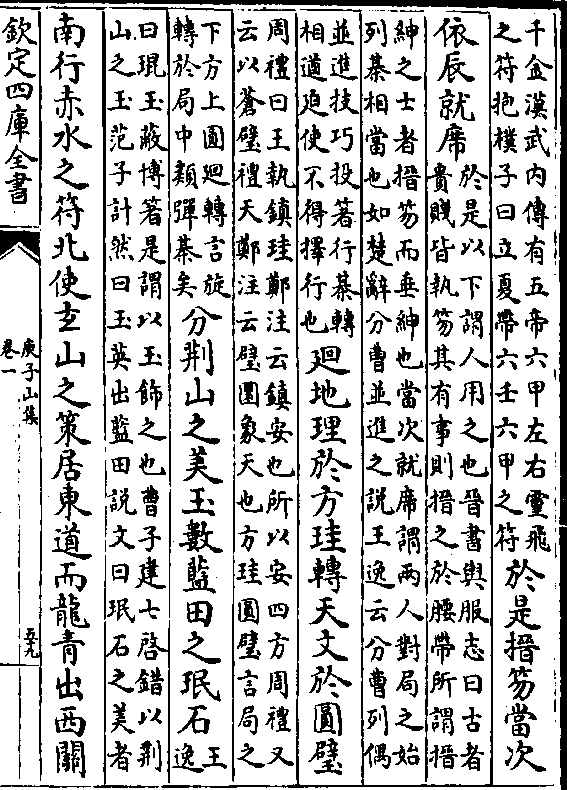 千金漢武内傳有五帝六甲左右靈飛
之符抱樸子曰立夏帶六壬六甲之符
於是搢笏當次
依辰就席
於是以下謂人用之也晉書輿服志曰古者
貴賤皆執笏其有事則搢之於腰帶所謂搢
紳之士者搢笏而垂紳也當次就席謂兩人對局之始
列棊相當也如楚辭分曹並進之説王逸云分曹列偶
並進技巧投箸行棊轉
相遒迫使不得擇行也
廻地理於方珪轉天文於圓璧
周禮曰王執鎮珪鄭注云鎮安也所以安四方周禮又
云以蒼璧禮天鄭注云璧圜象天也方珪圓璧言局之
下方上圓廻轉言旋
轉於局中類彈棊矣
分荆山之美玉數藍田之珉石
王
逸
曰琨玉蔽博箸是謂以玉飾之也曹子建七啓錯以荆
山之玉范子計然曰玉英出藍田説文曰珉石之美者
南行赤水之符北使玄山之策居東道而龍青出西關
欽定四庫全書
庾子山集
卷一
五九